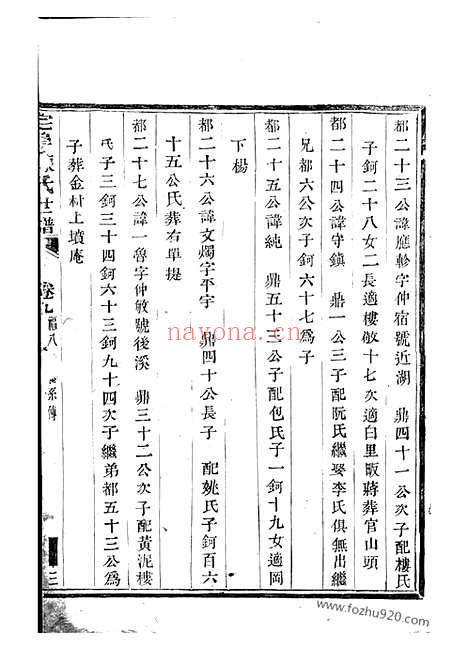 都二十三公諱應軫字仲宿號近湖 鼎四十一公次子配樓氏
子鈳二十八女二長適樓敏十七次適白里畈蔣葬官山頭
都二十四公諱守鎮 鼎一公三子配阮氏繼娶李氏俱無出繼
兄都六公次子鈳六十七爲子
都二十五公諱純 鼎五十三公子配包氏子一鈳十九女適岡
下楊
都二十六公諱文燭字平宇 鼎四十公長子 配姚氏子鈳百六
十五公氏葬右單提
都二十七公諱一魯字仲敏號後溪 鼎三十二公次子配黃泥樓
氏子三鈳三十四鈳六十三鈳九十四次子繼弟都五十三公爲
子葬金村上墳庵
氏世譜
卷九
系傳
三
nayona.com
www.fozhu920.com